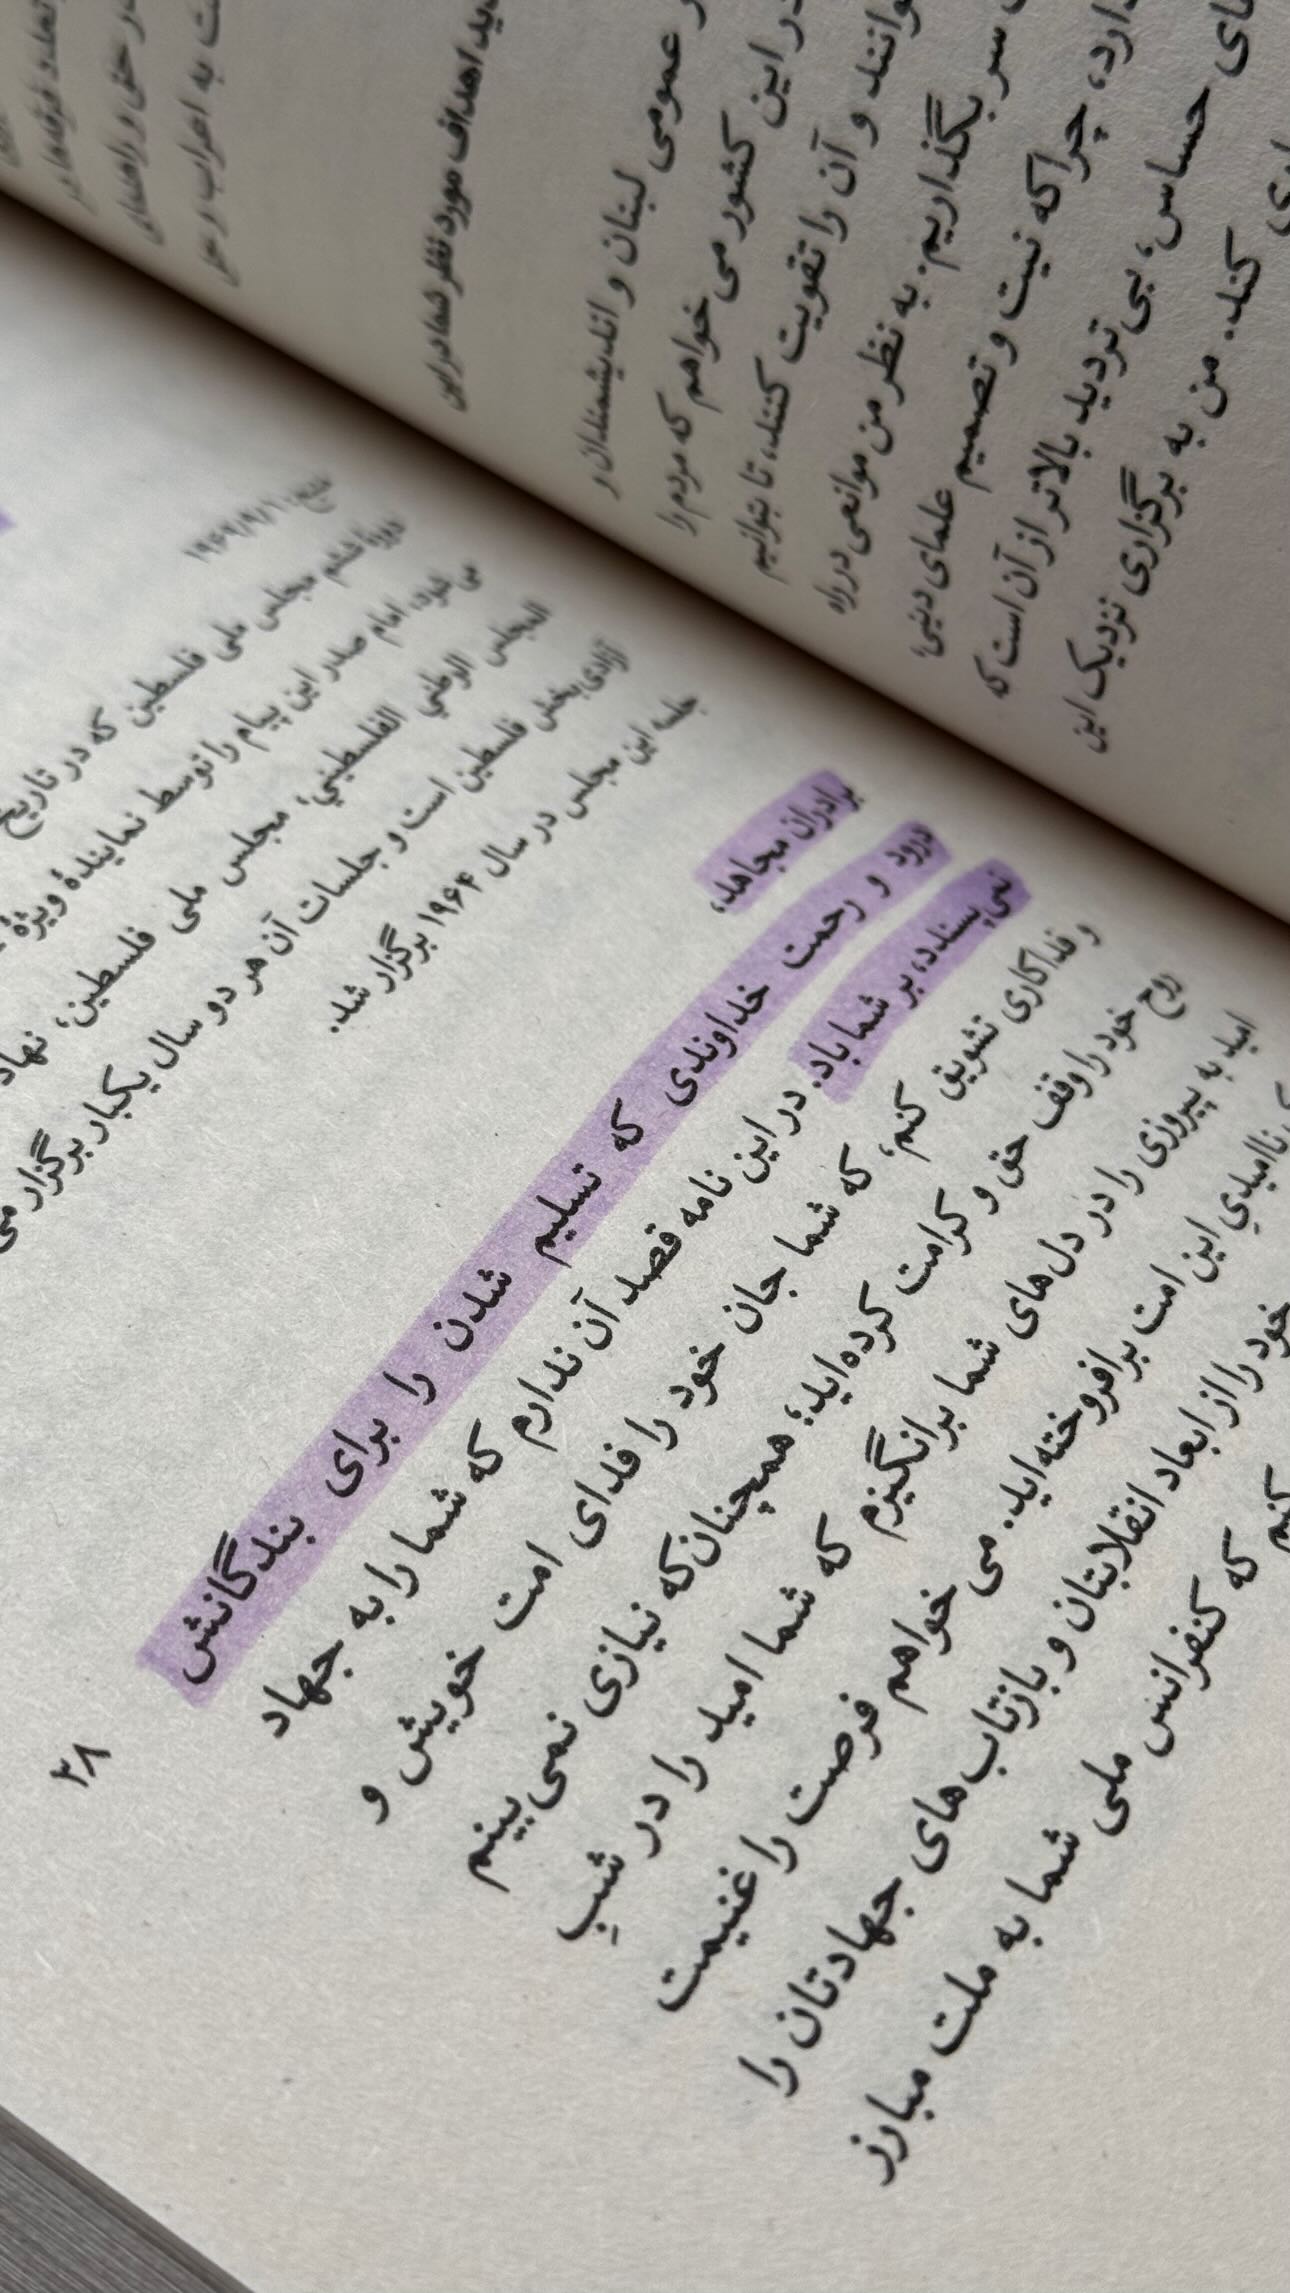 عمومی لبنان و اندیشمندان و
در این کشور می خواهم که مردم را
و آن را تقویت کنند، تا بتوانیم
سر بگذاریم. به نظر من موانعی در راه
دارد، چرا که نیت و تصمیم علمای دینی
حساس، بی تردید بالاتر از آن است که
کند. من به برگزاری نزدیک این
اهداف مورد نظر شما در این
مجلس ملی فلسطین که در تاریخ
امام صدر این پیام را توسط نمایندهٔ ویژهٔ
المجلس الوطني الفلسطيني، مجلس ملی فلسطین، نهاد
آزادی بخش فلسطین است و جلسات آن هر دو سال یکبار برگزار می
جلسه این مجلس در سال ۱۹۶۴ برگزار شد.
برادران مجاهد،
درود و رحمت خداوندی که تسلیم شدن را برای بندگانش
نمی پسندد، بر شما باد. در این نامه قصد آن ندارم که شما را به جهاد
و فداکاری تشویق کنم، که شما جان خود را فدای امت خویش و
روح خود را وقف حق و کرامت کرده اید؛ همچنان که نیازی نمی بینم
امید به پیروزی را در دل های شما برانگیزم که شما امید را در شبِ
ناامیدیِ این امت برافروخته اید. می خواهم فرصت را غنیمت
خود را از ابعاد انقلابتان و بازتاب های جهادتان را
کنم که کنفرانس ملی شما به ملت مبارز
۲۸